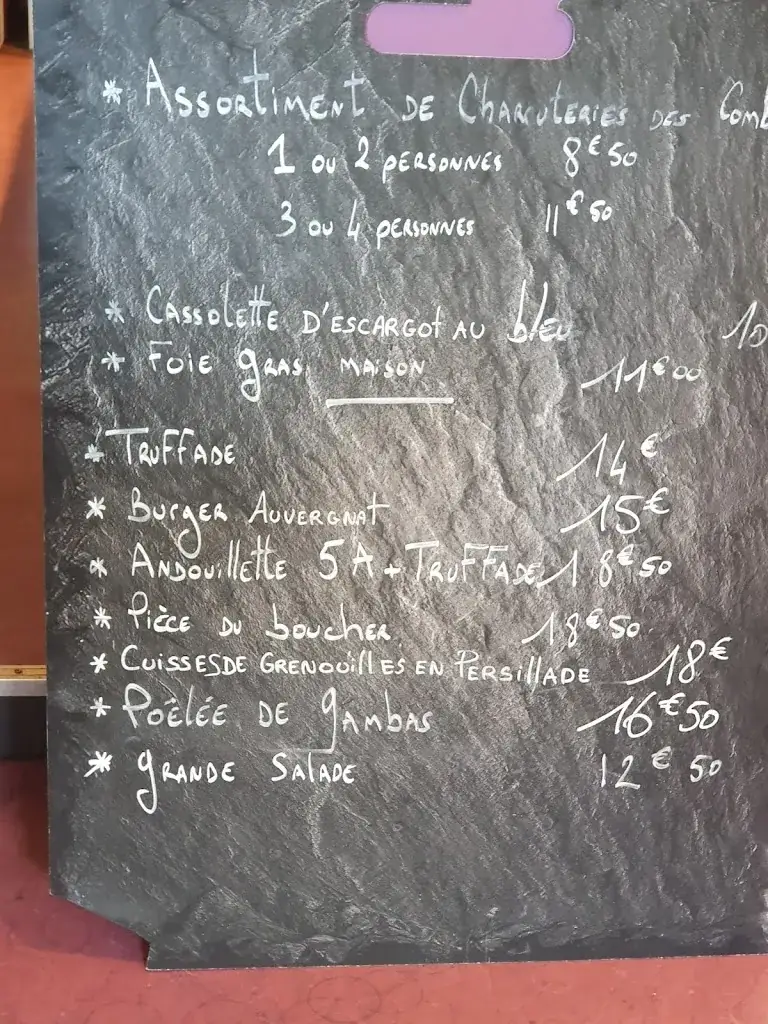 * Assortiment de Charcuteries des Comb
1 ou 2 personnes 8€50
3 ou 4 personnes 11€50
* Cassolette d'escargot au bleu 10
* Foie gras maison 11€00
* Truffade 14€
* Burger Auvergnat 15€
* Andouillette 5A + Truffade 18€50
* Pièce du boucher 18€50
* Cuisses de Grenouilles en Persillade 18€
* Poêlée de gambas 16€50
* grande Salade 12€50